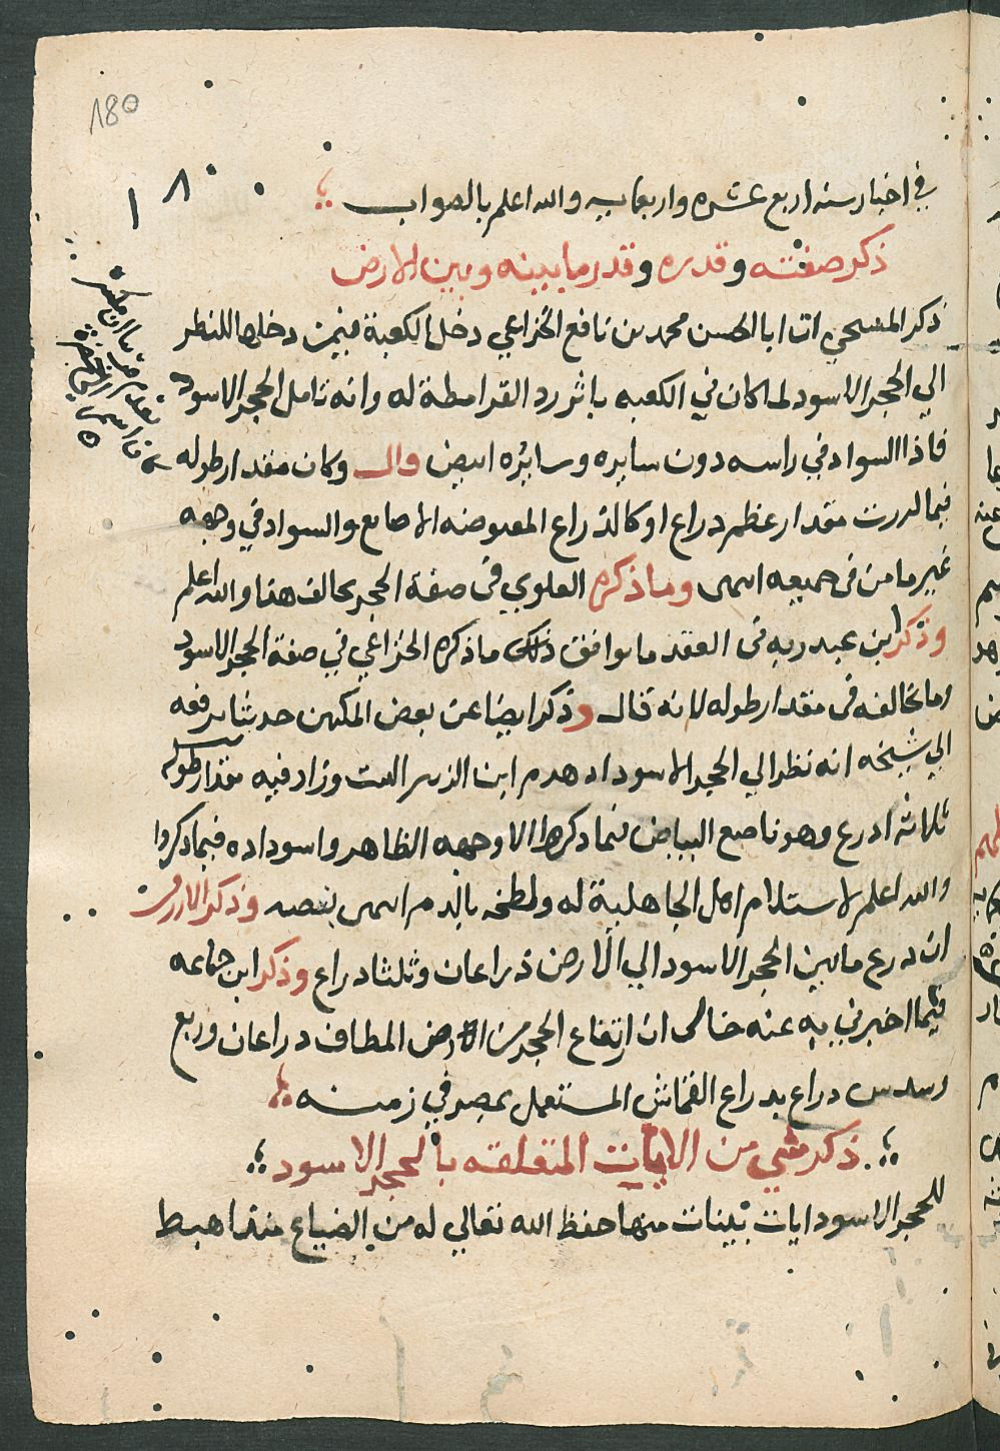 180
١٨٠
في اخبار سنه اربع عشره واربعمايه والله اعلم بالصواب
ذكر صفته وقدره وقدر ما بينه وبين الارض
ذكر المسبحي ان ابا الحسن محمد بن نافع الخزاعي دخل الكعبة فيمن دخلها للنظر
الي الحجر الاسود لما كان في الكعبه باثر رد القرامطة له وانه تامل الحجر الاسود
فاذا السواد في راسه دون سايره وسايره ابيض قال وكان مقدار طوله
فيما حررت مقدار عظم دراع او كالذراع المقبوضه الاصابع والسواد في وجهه
غير ماض في جميعه انتهى وما ذكره العلوي في صفة الحجر يخالف هذا والله اعلم
وذكر ابن عبد ربه في العقد ما يوافق ذلك ما ذكره الخزاعي في صفة الحجر الاسود
وما يخالفه في مقدار طوله لانه قال وذكر ايضا عن بعض المكيين حديثا يرفعه
الي شيخه انه نظر الي الحجر الاسود اد هدم ابن الزبير البيت وزاد فيه مقدار طوله
ثلاثة ادرع وهو ناصع البياض فيما دكروا الا وجهه الظاهر واسوداده فيما دكروا
والله اعلم لاستلام اهل الجاهلية له ولطخه بالدم انتهى بنصه وذكر الازرقي
ان درع ما بين الحجر الاسود الي الارض ذراعان وثلثا دراع وذكر ابن جماعه
فيما اخبرني به عنه خالي ان ارتفاع الحجر من الارض المطاف دراعان وربع
وسدس دراع بدراع القماش المستعمل بمصر في زمنه
ذكر شي من الايات المتعلقه بالحجر الاسود
للحجر الاسود ايات بينات منها حفظ الله تعالي له من الضياع منذ اهبط